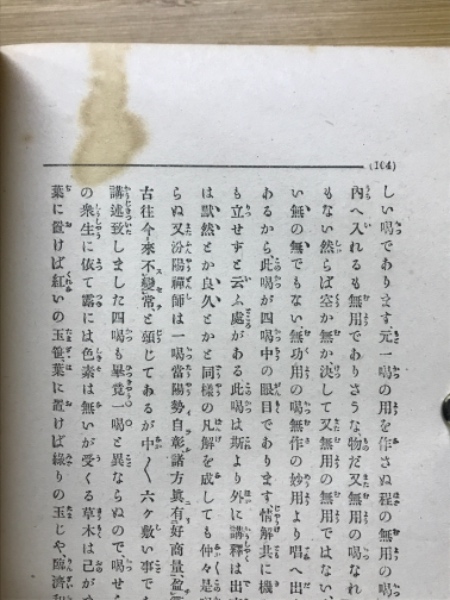 (104)
しい喝であります元一喝の用を作さぬ程の無用の
內へ入れるも無用でありさうな物だ又無用の喝なれ
もない然らば空か無か決して又無用の無用ではない、
い無の無でもない無功用の喝無作の妙用より唱へ出
あるから此喝が四喝中の眼目であります情解共に機
も立せずと云ふ處がある此喝は斯より外に講釋は出
は默然とか良久とかと同樣の凡解を成しても仲々是
らぬ又汾陽禪師は一喝當陽勢自彰諸方眞有好商量、盈
古往今來不變常と頌じてあるが中〱六ケ敷い事で
講述致しました四喝も畢竟一喝と異ならぬので喝せ
の衆生に依て露には色素は無いが受くる草木は己が
葉に置けば紅いの玉笹葉に置けば綠りの玉じや、臨濟